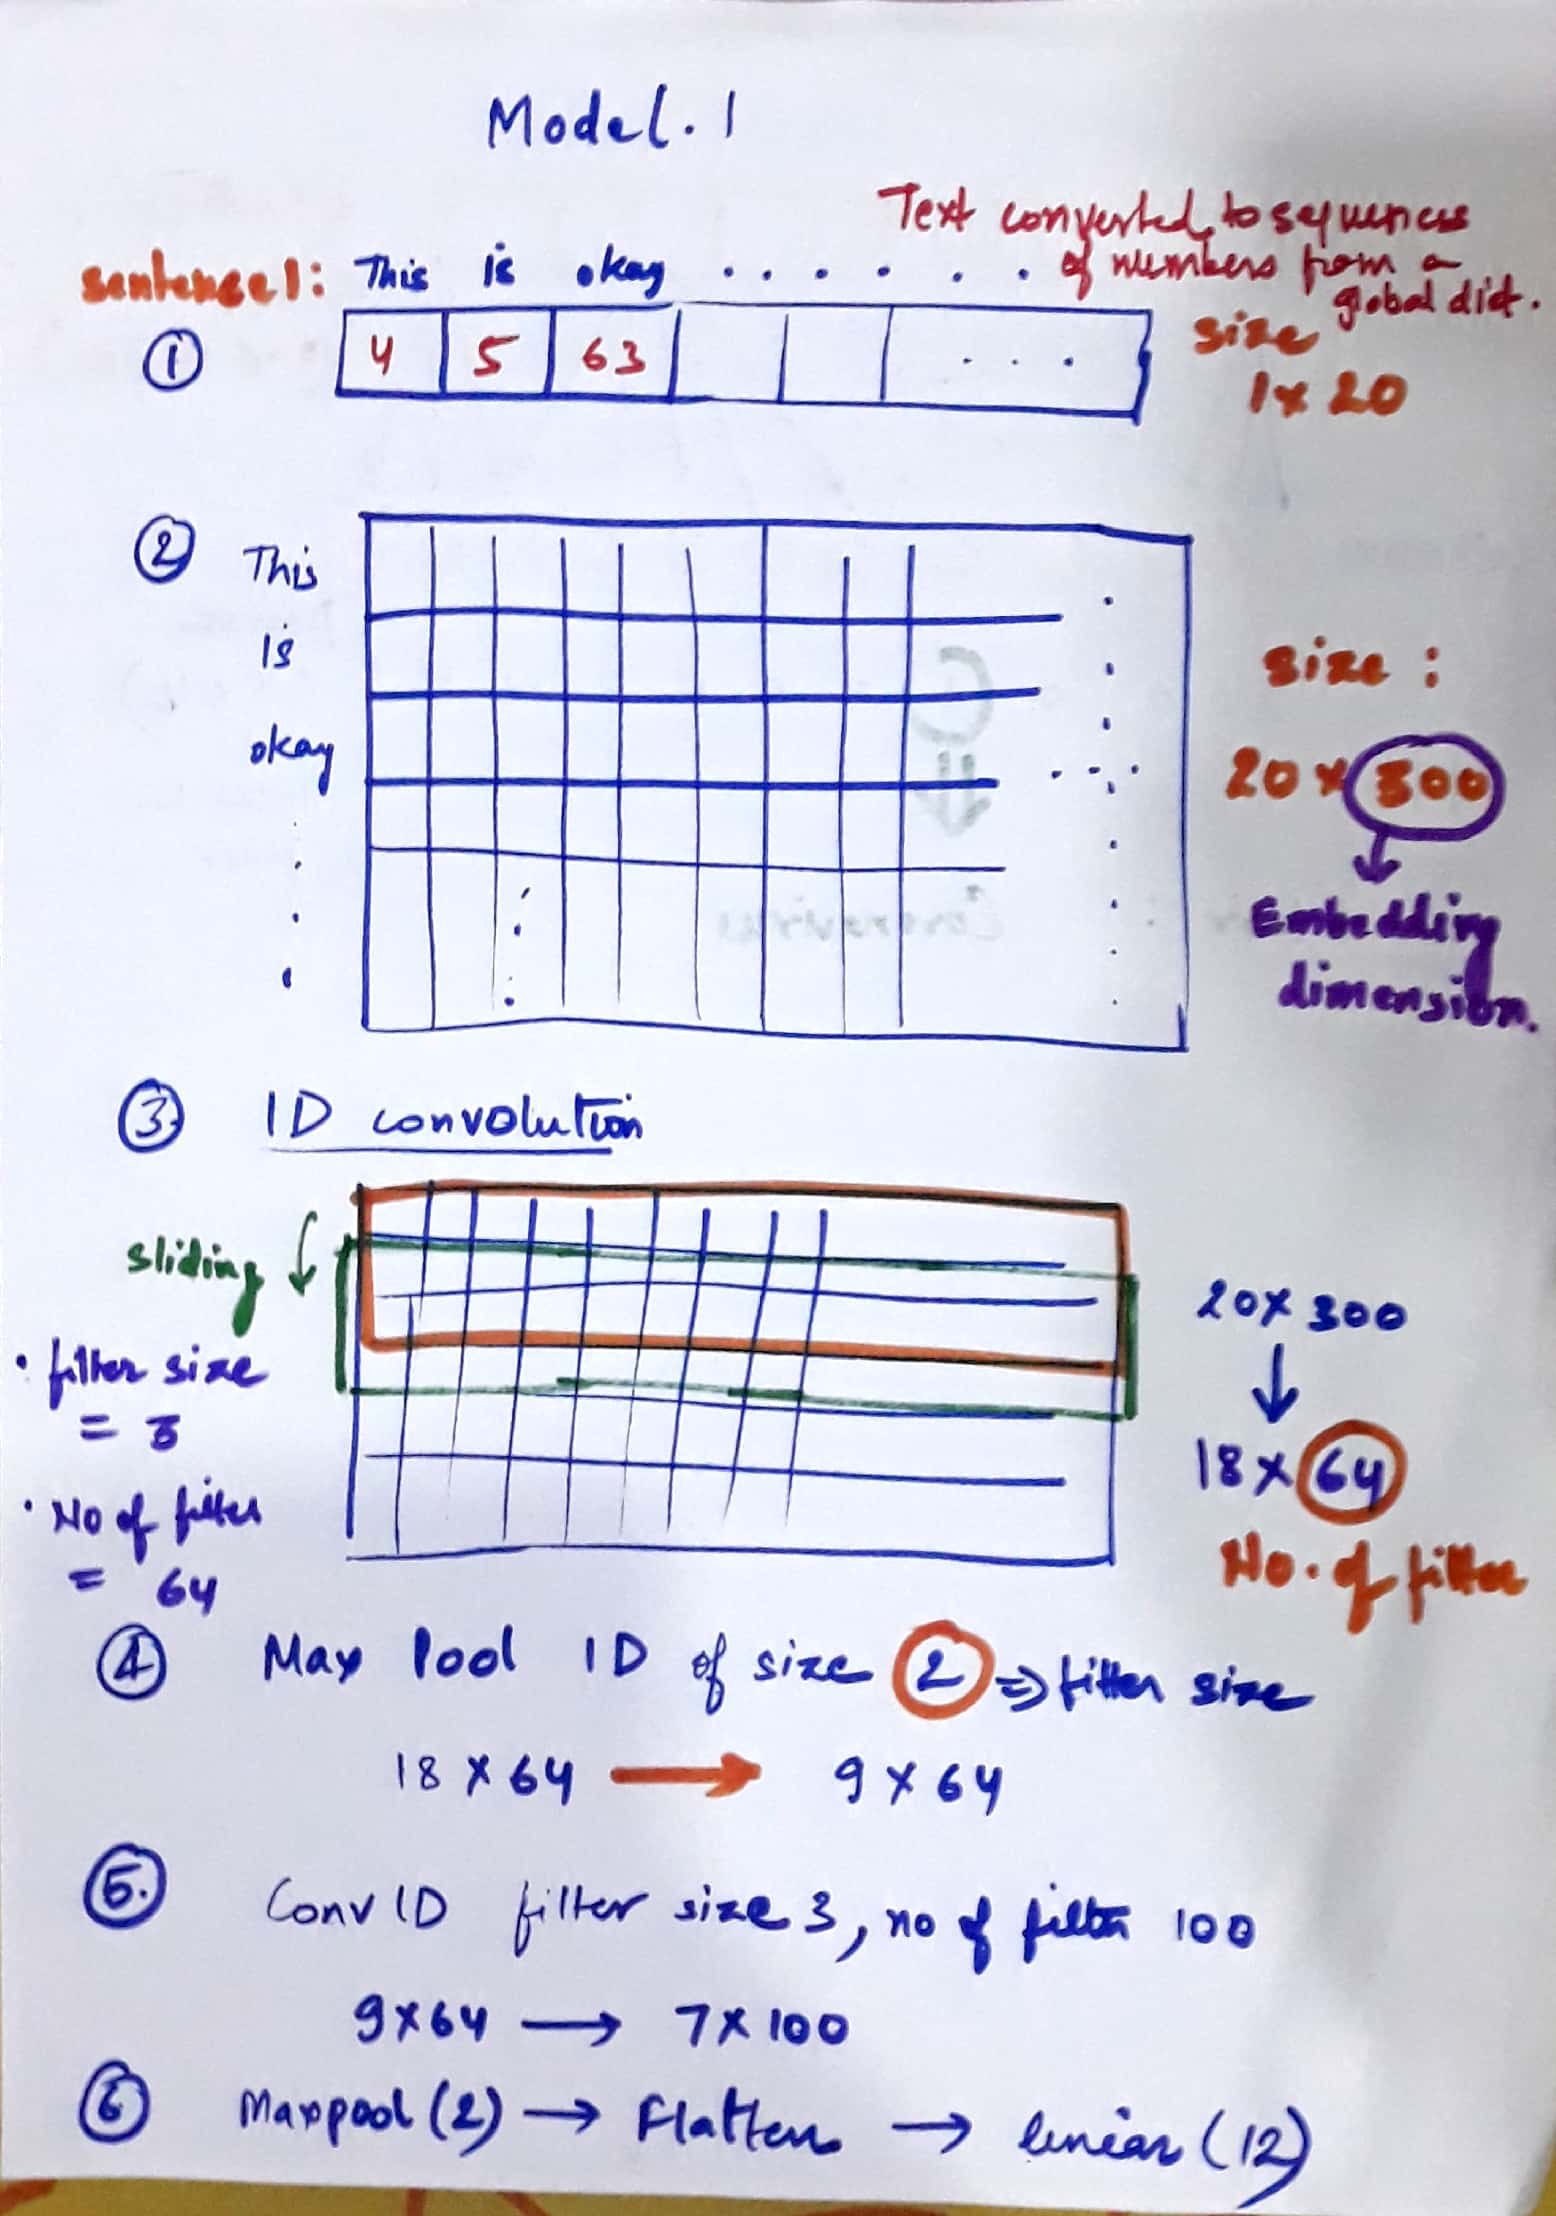 Model. 1
Text converted to sequences
of numbers from a
global dict.
sentence1: This is okay . . . . . .
① 4 5 63 . . .
size
1x20
② This
is
okay
size :
20 x 300
Embedding
dimension.
③ 1D convolution
sliding
• filter size
= 3
• No of filter
= 64
20x300
18x64
No. of filter
④ Max Pool 1D of size 2 ⇒ filter size
18 x 64 → 9 x 64
⑤. Conv 1D filter size 3, no of filter 100
9x64 → 7x100
⑥ Maxpool (2) → Flatten → linear (12)